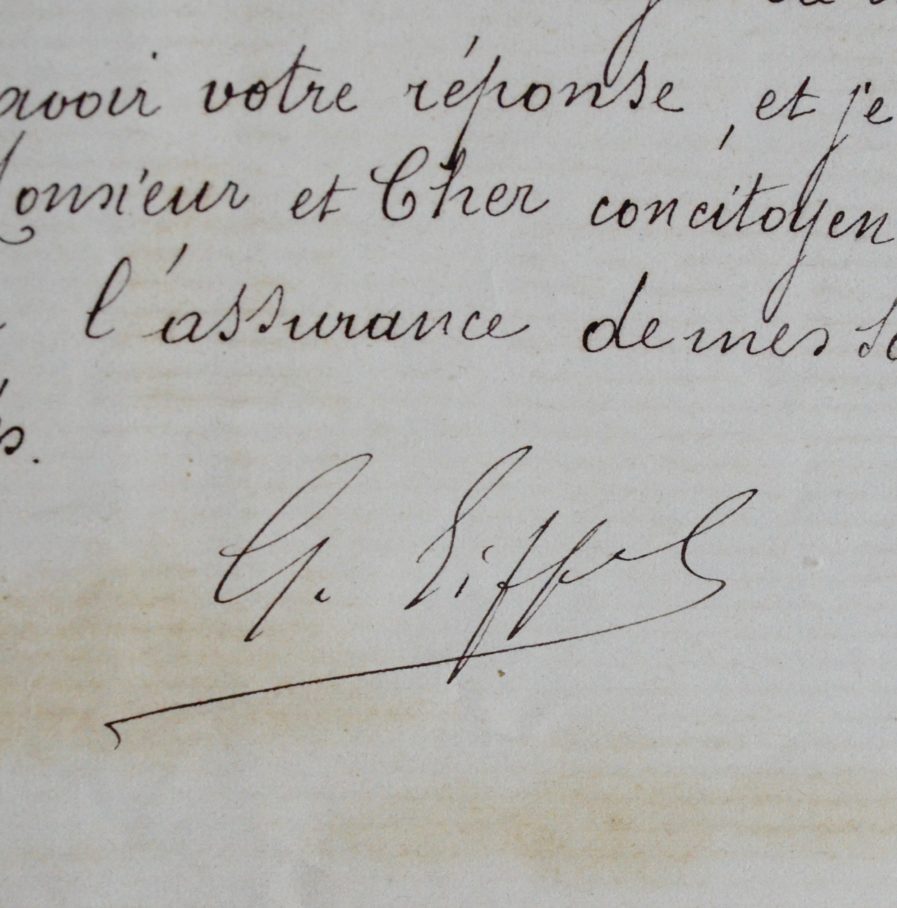 avoir votre réponse, et je
Monsieur et Cher concitoyen
l'assurance de mes
G. Eiffel